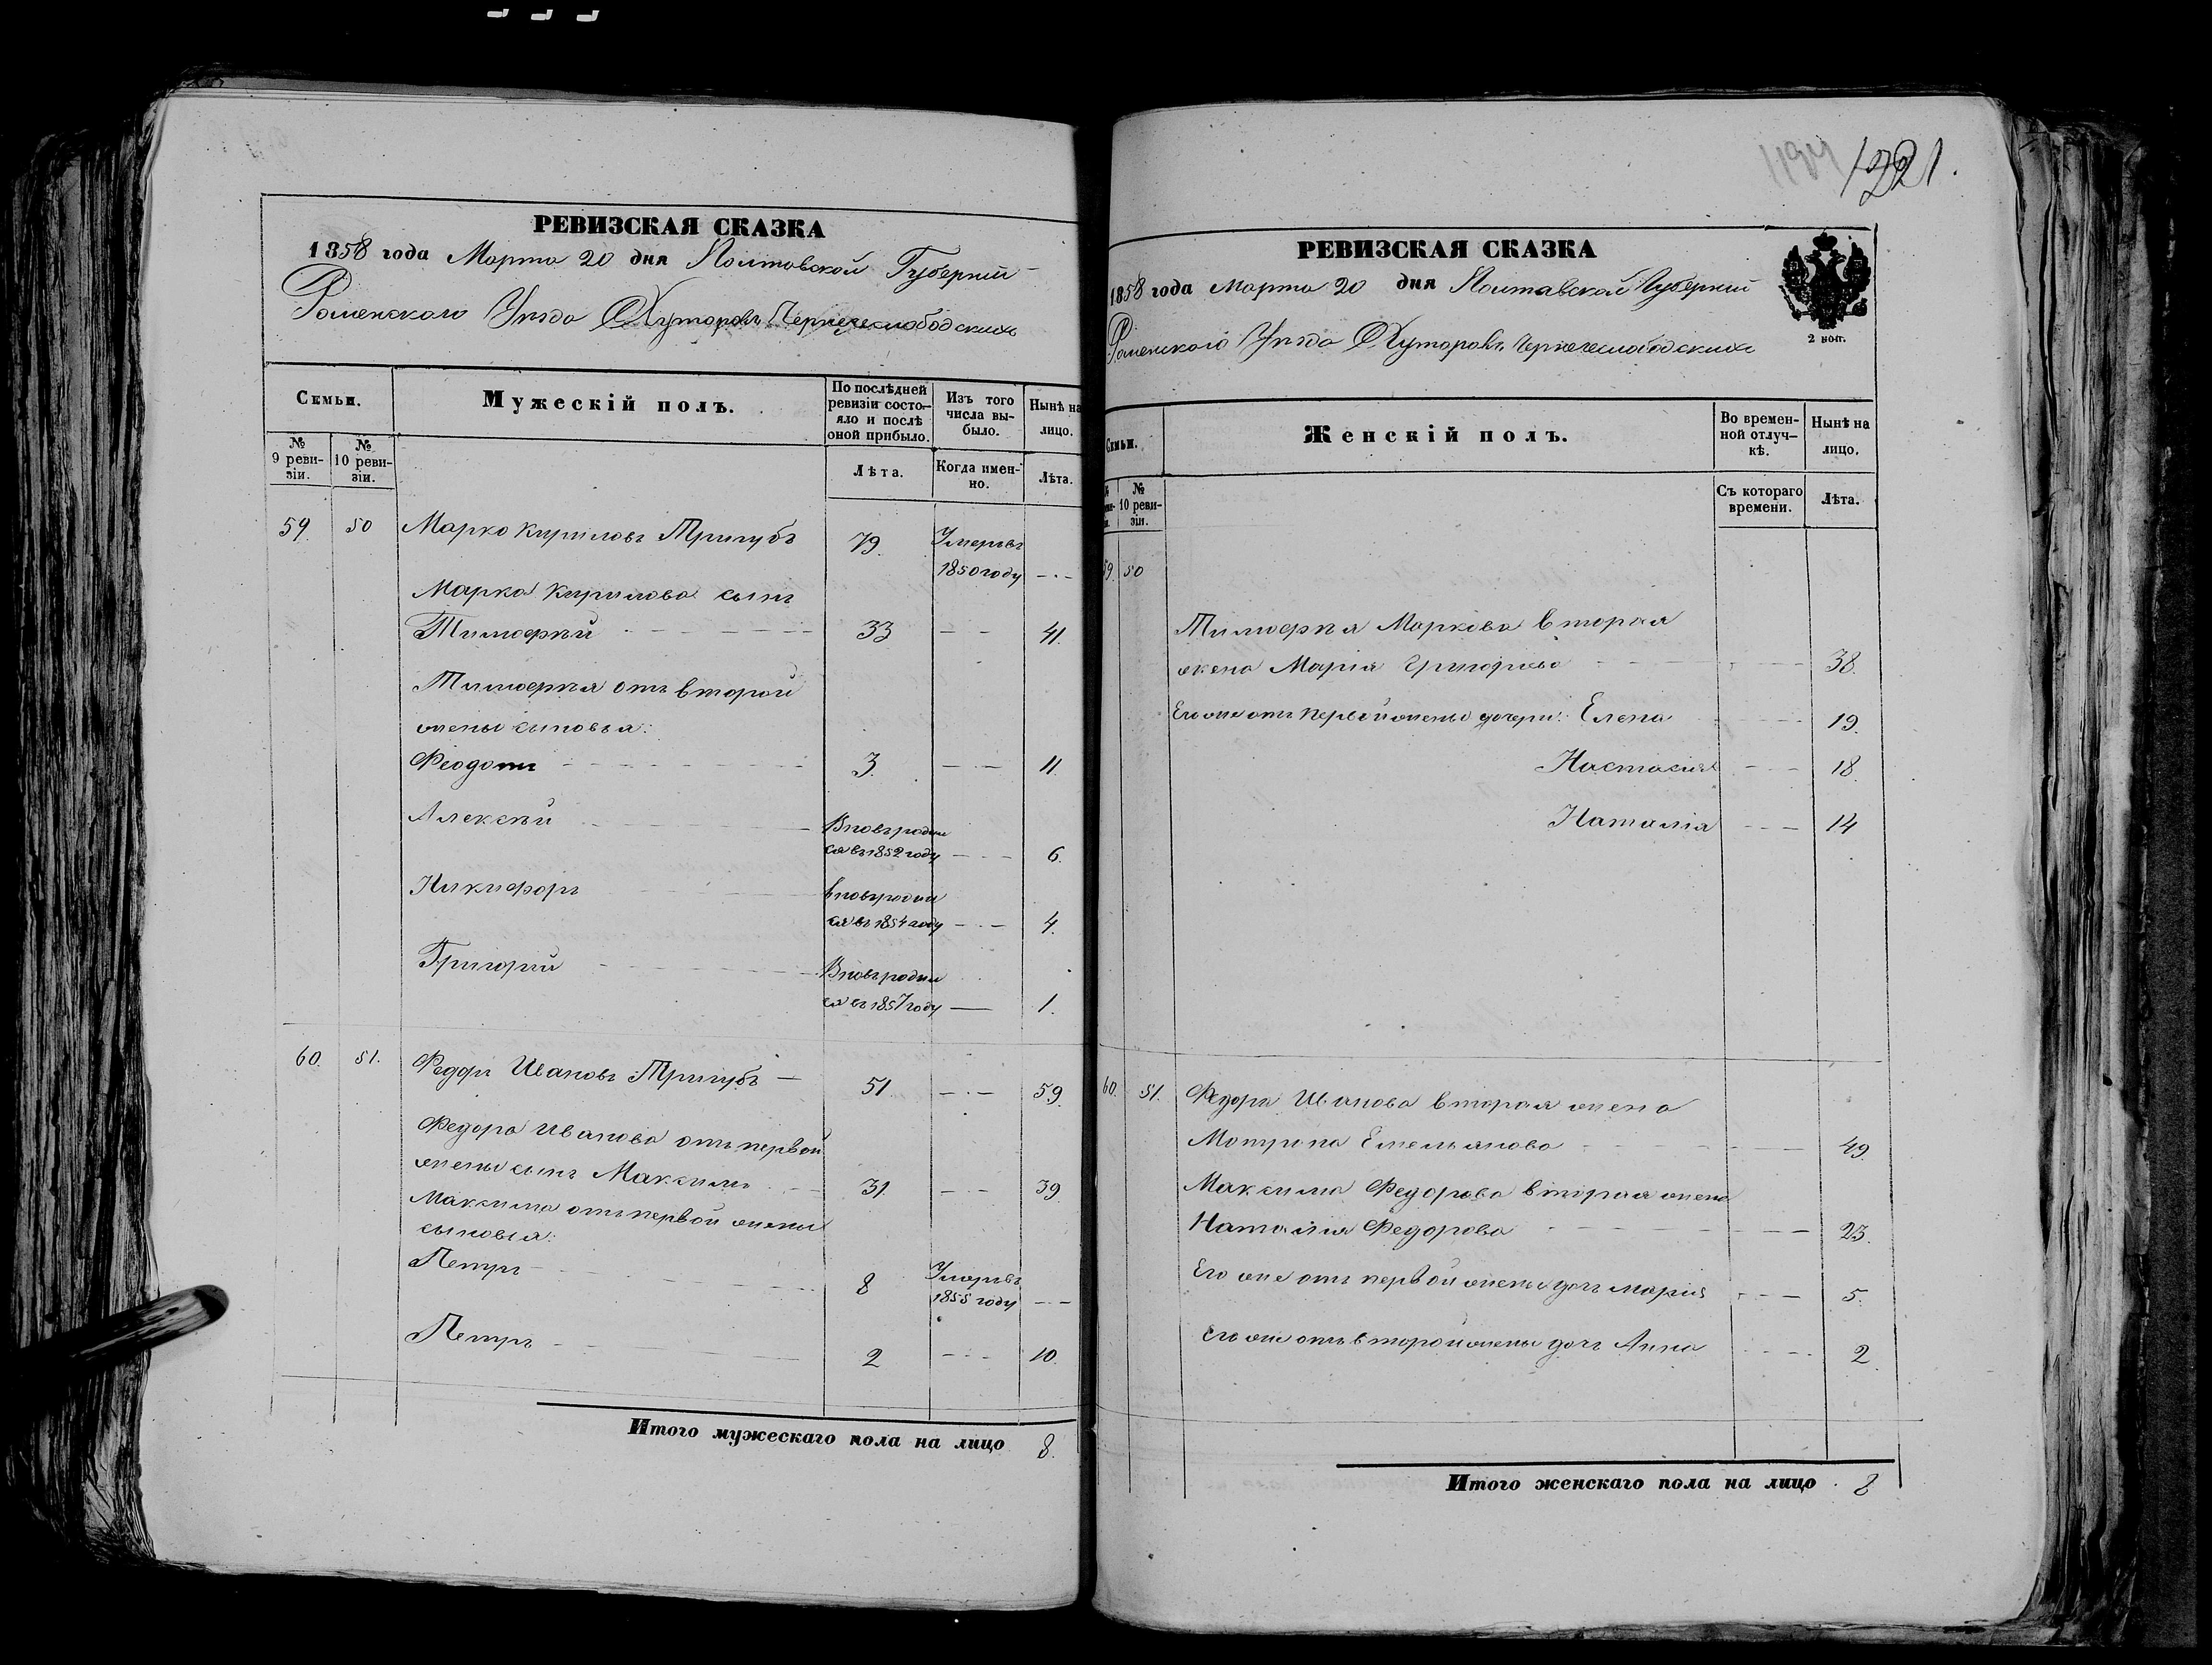 РЕВИЗСКАЯ СКАЗКА
1858 года Марта 20 дня Полтавской Губерніи
Роменского Уѣзда Хуторовъ Чернечеслободскихъ
Семьи.
Мужескій полъ.
По послѣдней ревизіи состояло и послѣ оной прибыло.
Изъ того числа выбыло.
Нынѣ на лицо.
№ 9 ревизіи.
№ 10 ревизіи.
Лѣта.
Когда именно.
Лѣта.
59. 50 Марко Кириловъ Тригубъ 79. Умеръ въ
1850 году — · —
Марка Кирилова сынъ
Тимофѣй 33 — — 41.
Тимофѣя отъ второй
жены сыновья:
Феодотъ 3. — · — 11.
Алексѣй Вновьродил
ся въ 1852 году — · — 6.
Никифоръ Вновьродил
ся въ 1854 году — · — 4.
Григорій Вновьродил
ся въ 1857 году — 1.
60. 51. Федоръ Ивановъ Тригубъ — 51 — · — 59.
Федора Иванова отъ первой
жены сынъ Максимъ 31. — · — 39.
Максима отъ первой жены
сыновья:
Петръ 8 Умеръ въ
1855 году — · —
Петръ 2 — · — 10.
Итого мужескаго пола на лицо 8.
1194 1221.
РЕВИЗСКАЯ СКАЗКА
1858 года Марта 20 дня Полтавской Губерніи
Роменского Уѣзда Хуторовъ Чернечеслободскихъ
2 коп.
Семьи.
Женскій полъ.
Во временной отлучкѣ.
Нынѣ на лицо.
№ 10 ревизіи.
Съ котораго времени.
Лѣта.
59. 50
Тимофѣя Маркова вторая
жена Марія Григорьева 38.
Его же отъ первой жены дочери: Елена 19.
Настасія 18.
Наталія 14
60. 51. Федора Иванова вторая жена
Мотрона Емельянова 49.
Максима Федорова вторая жена
Наталія Федорова 25.
Его же отъ первой жены дочь Марія 5.
Его же отъ второй жены дочь Анна 2.
Итого женскаго пола на лицо 8